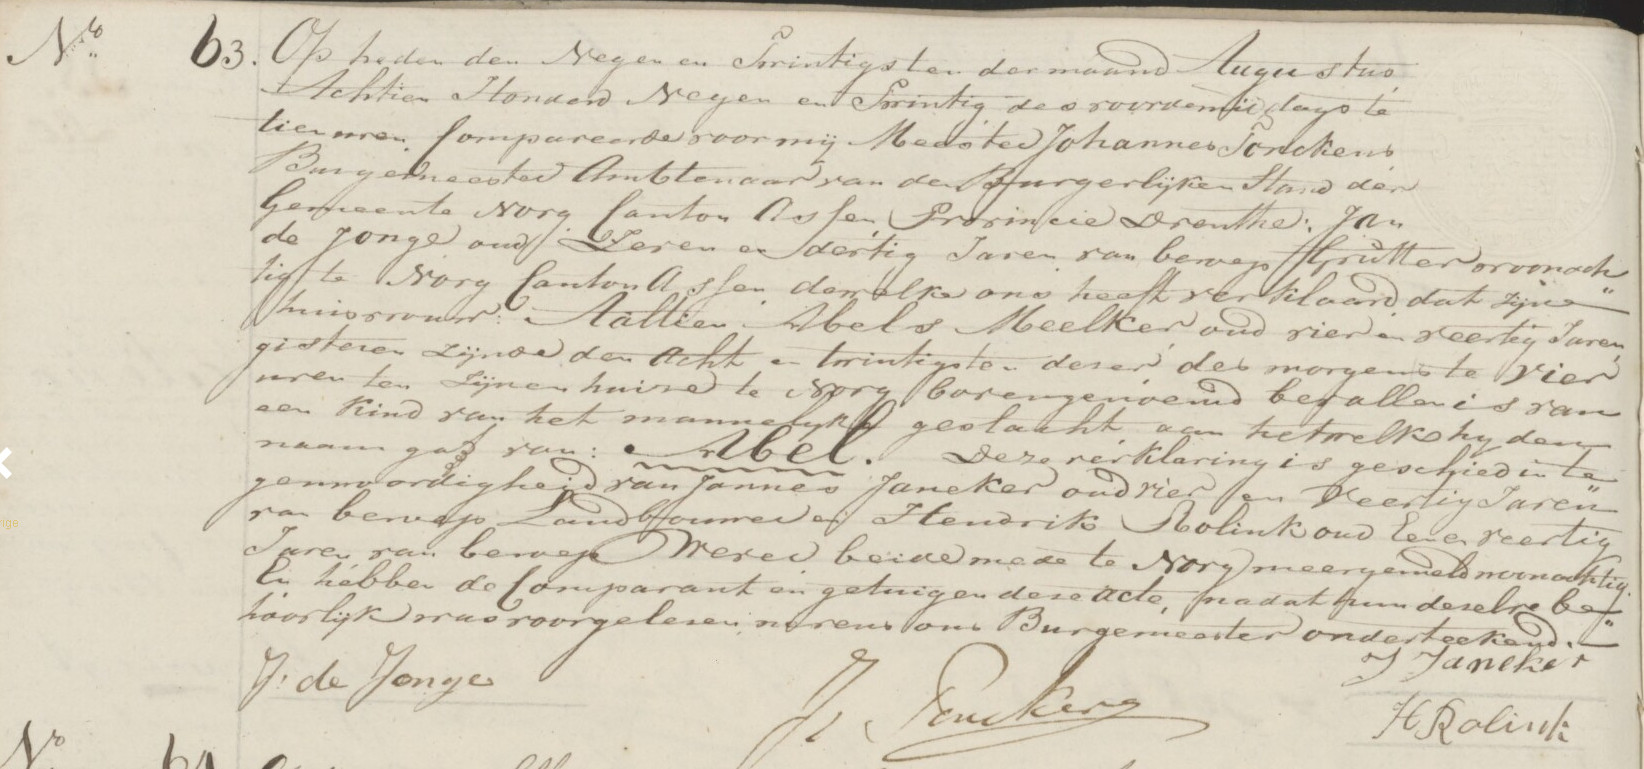 No. 63. Op heden den Negen en Twintigsten der maand Augustus
Achtien Honderd Negen en Twintig des voordemiddags te
tien uren, Compareerde voor mij Meester Johannes Tonckens
Burgemeester Ambtenaar van den Burgerlijken Stand der
Gemeente Norg Canton Assen Provincie Drenthe: Jan
de Jonge oud Zeven en dertig Jaren van beroep Grutter woonach
tig te Norg Canton Assen dewelke ons heeft verklaard dat zijne
huisvrouw: Aaltien Abels Meelker oud vier en veertig Jaren,
gisteren zijnde den Acht en twintigsten dezer des morgens te vier
uren ten zijnen huize te Norg bovengenoemd bevallen is van
een Kind van het mannelijk geslacht aan hetwelk hy den
naam gaf van: Abel. Deze verklaring is geschied in te
genwoordigheid van Jannes Janeker oud vier en Veertig Jaren
van beroep Landbouwer en Hendrik Rolink oud Een en veertig
Jaren van beroep Wever beide mede te Norg meergemeld woonachtig.
En hebben de Comparant en getuigen deze acte, nadat hun dezelve be
hoorlijk was voorgelezen nevens ons Burgemeester onderteekend.
J. de Jonge
J. Tonckens
J Janeker
H Rolink
No. 64